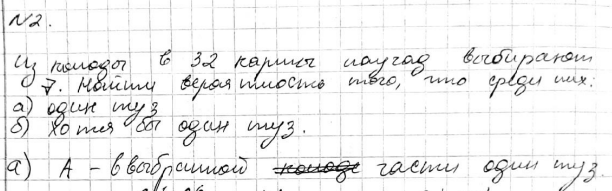 №2.
Из колоды в 32 карты наугад выбирают
7. Найти вероятность того, что среди них:
а) один туз
б) хотя бы один туз.
а) А - в выбранной колоде части один туз.